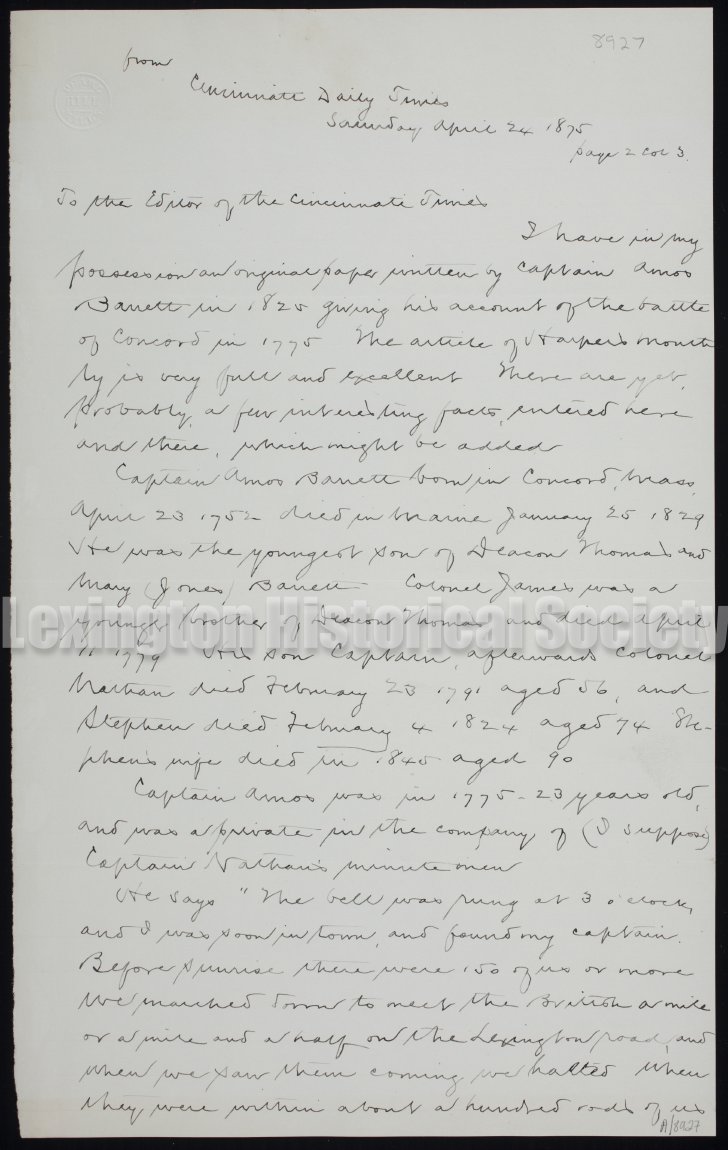 8927
from
Cincinnati Daily Times
Saturday April 24 1875
page 2 col 3.
To the Editor of the Cincinnati Times
I have in my
possession an original paper written by Captain Amos
Barrett in 1825 giving his account of the battle
of Concord in 1775 The article of Harpers month
ly is very full and excellent There are yet,
probably, a few interesting facts, entered here
and there, which might be added
Captain Amos Barrett born in Concord, Mass,
April 23 1752 died in Maine January 25 1829
He was the youngest son of Deacon Thomas and
Mary (Jones) Barrett Colonel James was a
younger brother of Deacon Thomas and died April
11 1779 His son Captain, afterwards Colonel
Nathan died February 23 1791 aged 56, and
Stephen died February 4 1824 aged 74 Ste-
phen's wife died in 1845 aged 90
Captain Amos was in 1775 - 23 years old,
and was a private in the company of (I suppose)
Captain Nathan's minute men
He says "The bell was rung at 3 o'clock,
and I was soon in town, and found my captain.
Before sunrise there were 150 of us or more
We marched down to meet the British a mile
or a mile and a half on the Lexington road, and
when we saw them coming we halted When
they were within about a hundred rods of us
A/8927
Lexington Historical Society